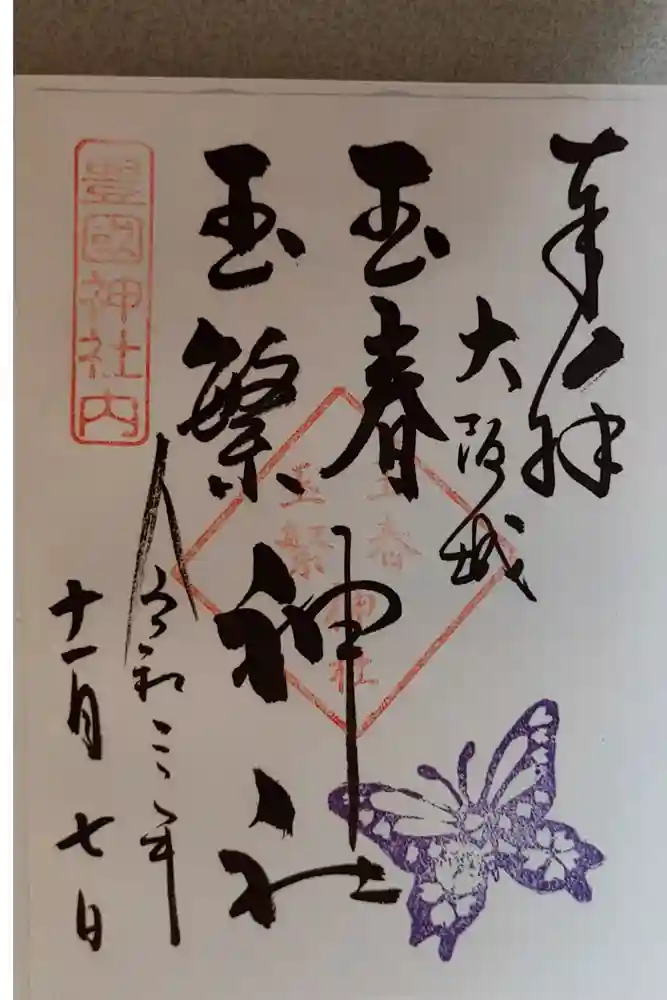 奉拝
大阪城
玉春
玉繁
神社
玉春
玉繁
神社
令和二年
十一月七日
豊國神社内